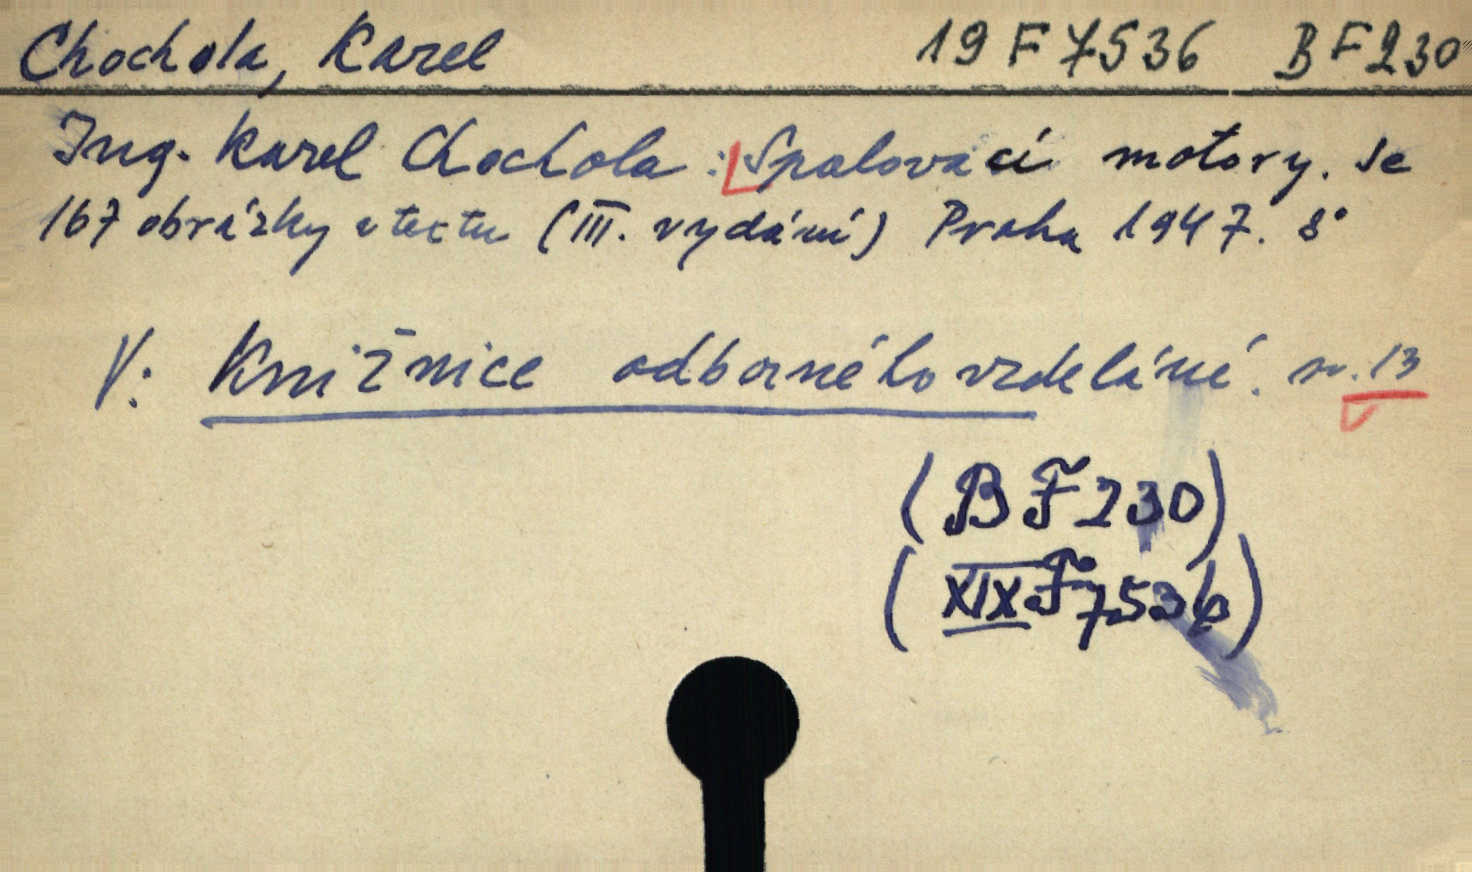 Chochola, Karel 19 F 7536 BF230
Ing. Karel Chochola: Spalovací motory. Se
167 obrázky v textu (III. vydání) Praha 1947. 8°
V: Knižnice odborného vzdělání. sv. 13
(BF230)
(XIX F 7536)